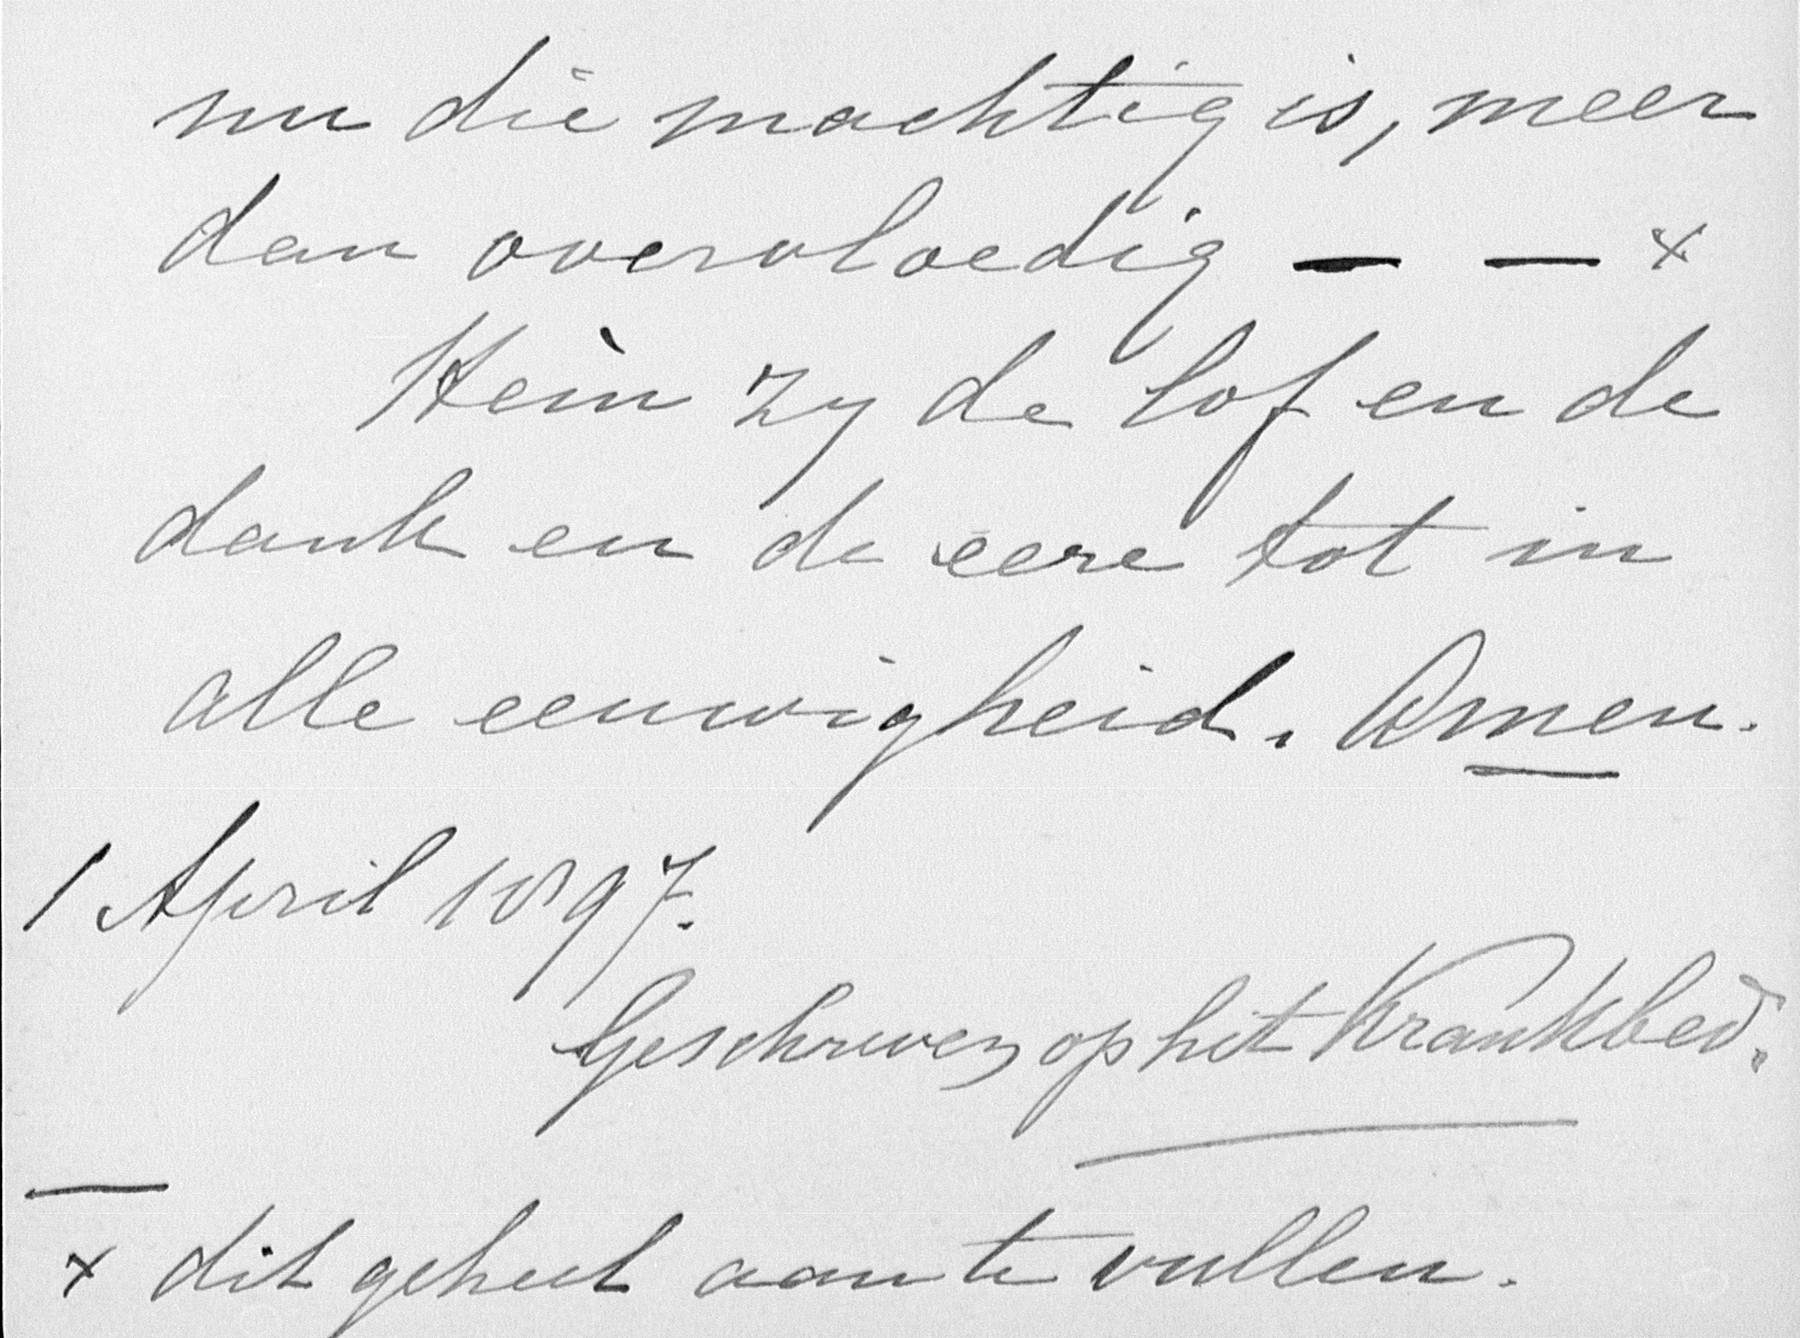 nu die machtig is, meer
dan overvloedig — — x
Hem zy de lof en de
dank en de eere tot in
alle eeuwigheid. Amen.
1 April 1897.
Geschreven op het Krankbed.
x dit geheel aan te vullen.